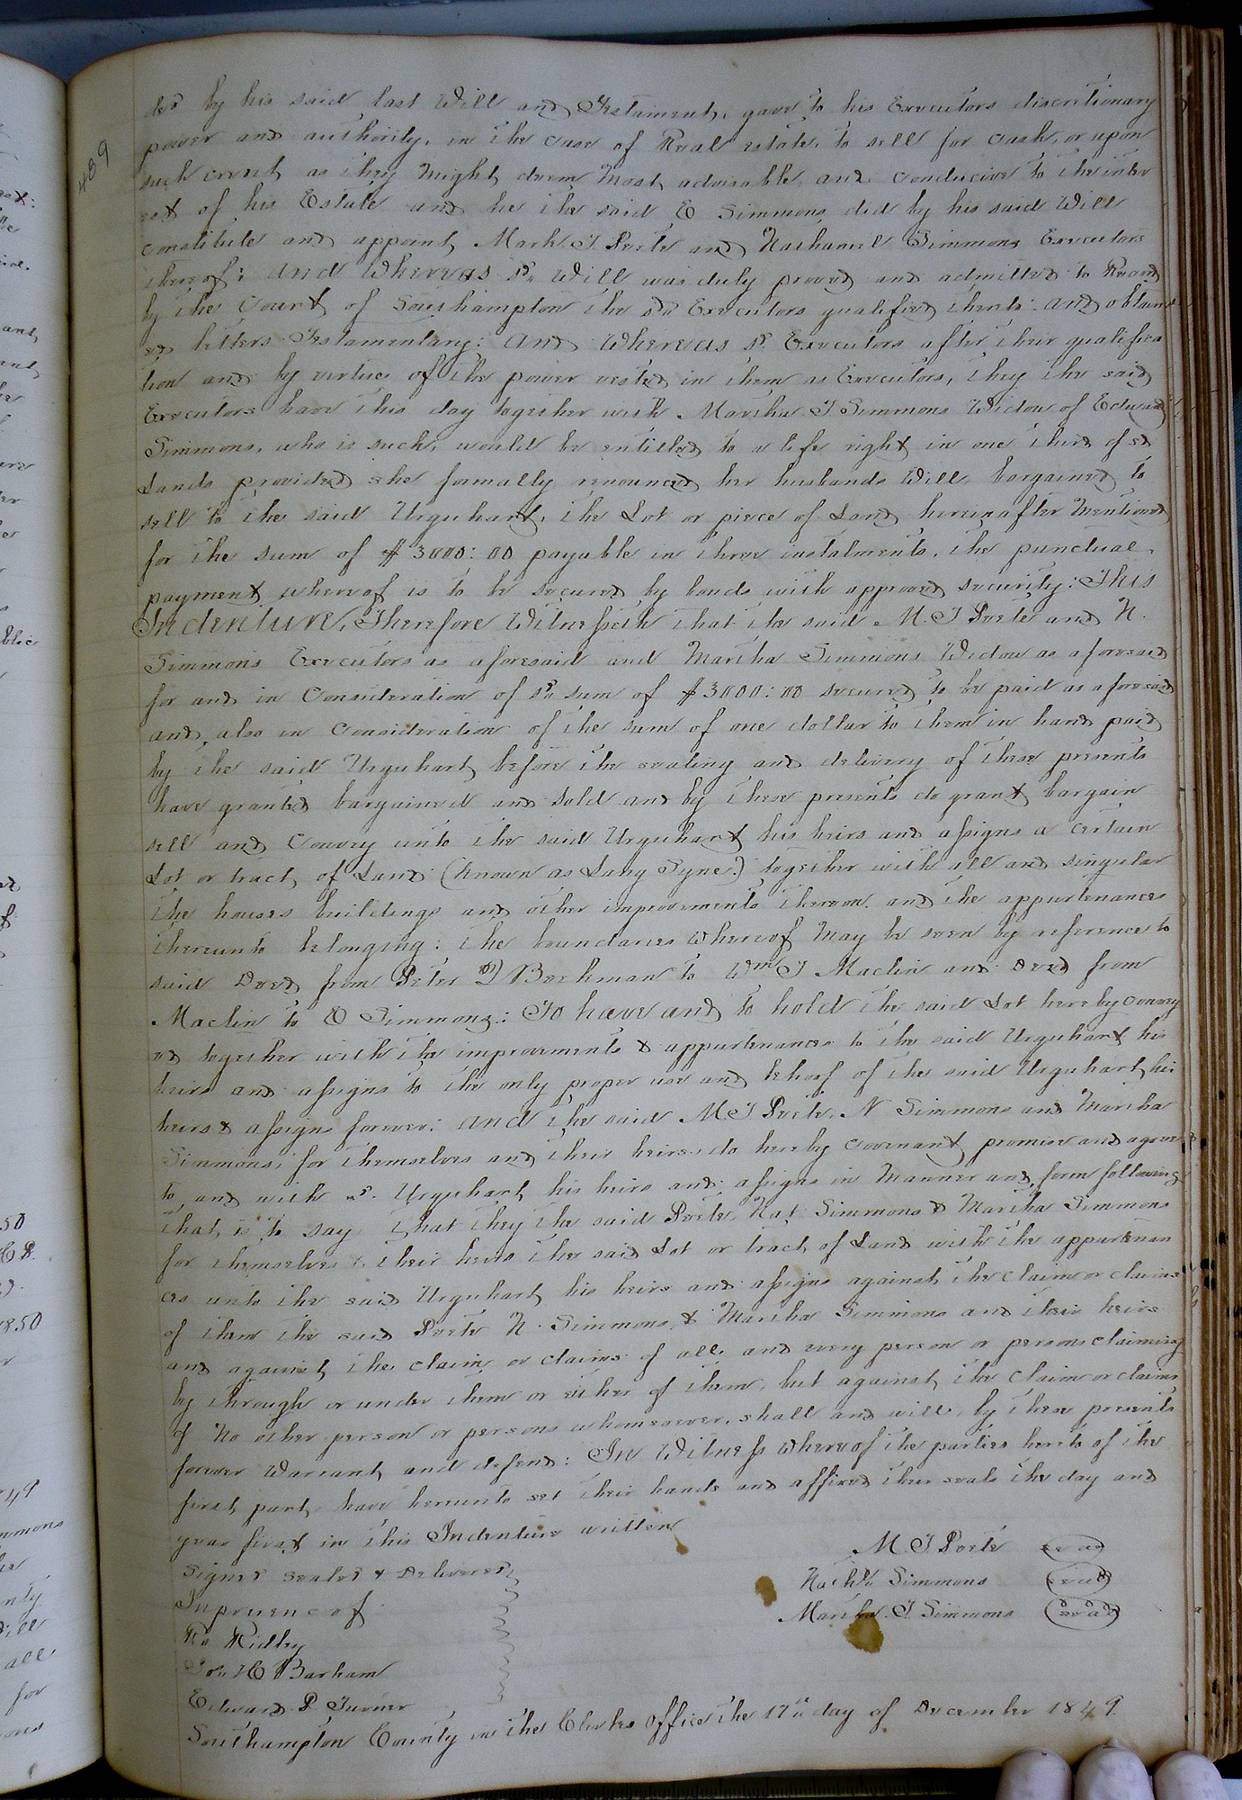 489
ded by his said last Will and Testament, gave to his Executors discretionary
power and authority, in the case of Real estate, to sell for cash, or upon
such credit as they might deem most advisable and conducive to the inter
est of his Estate and he the said E Simmons did by his said Will
constitute and appoint Mark T Porte and Nathaniel Simmons Executors
thereof: and Whereas sd. Will was duly proved and admitted to Record
by the Court of Southampton the sd Executors qualified thereto: and obtain
ed letters Testamentary: And Whereas sd. Executors after their qualifica
tion and by virtue of the power vested in them as Executors, they the said
Executors have this day together with Martha T Simmons Widow of Edward
Simmons, who is such, would be entitled to a life right in one third of sd
Lands provided she formally renounced her husbands Will bargained to
sell to the said Urquhart, the Lot or piece of Land hereinafter Mentioned
for the sum of $3000:00 payable in three instalments, the punctual
payment whereof is to be secured by bonds with approved security: This
Indenture, Therefore Witnesseth that the said M. T Porte and N.
Simmons Executors as aforesaid and Martha Simmons Widow as aforesaid
for and in Consideration of sd. sum of $3000:00 secured to be paid as aforesaid
and also in Consideration of the sum of one dollar to them in hand paid
by the said Urquhart before the sealing and delivery of these presents
have granted bargained and sold and by these presents do grant bargain
sell and Convey unto the said Urquhart his heirs and assigns a certain
Lot or tract of Land (Known as Lang Syne) together with all and singular
the houses buildings and other improvements thereon and the appurtenances
thereunto belonging: the boundaries whereof May be seen by reference to
said Deed from Peter Beekman to Wm T Maclin and Deed from
Maclin to E Simmons: To have and to hold the said Lot hereby convey
ed together with the improvements & appurtenances to the said Urquhart his
heirs and assigns to the only proper use and behoof of the said Urquhart his
heirs & assigns forever: and the said M T Porte, N Simmons and Martha
Simmons, for themselves and their heirs do hereby covenant promise and agree
to and with sd. Urquhart his heirs and assigns in Manner and form following
that is to say that they the said Porte, Nat Simmons & Martha Simmons
for themselves & their heirs the said Lot or tract of Land with the appurtenan
ces unto the said Urquhart his heirs and assigns against the claim or claims
of them the said Porte N. Simmons & Martha Simmons and their heirs
and against the claim or claims of all and every person or persons claiming
by through or under them or either of them, but against the claim or claims
of No other person or persons whomsoever, shall and will by these presents
forever Warrant and defend: In Witness Whereof the parties hereto of the
first part have hereunto set their hands and affixed their seals the day and
year first in this Indenture written
M T Porte (seal)
Signed Sealed & Delivered
Nathl. Simmons (seal)
In presence of
Martha. T. Simmons (seal)
Ro Ridley
Jos H Barham
Edward P Turner
Southampton County in the Clerks Office the 17th day of December 1849